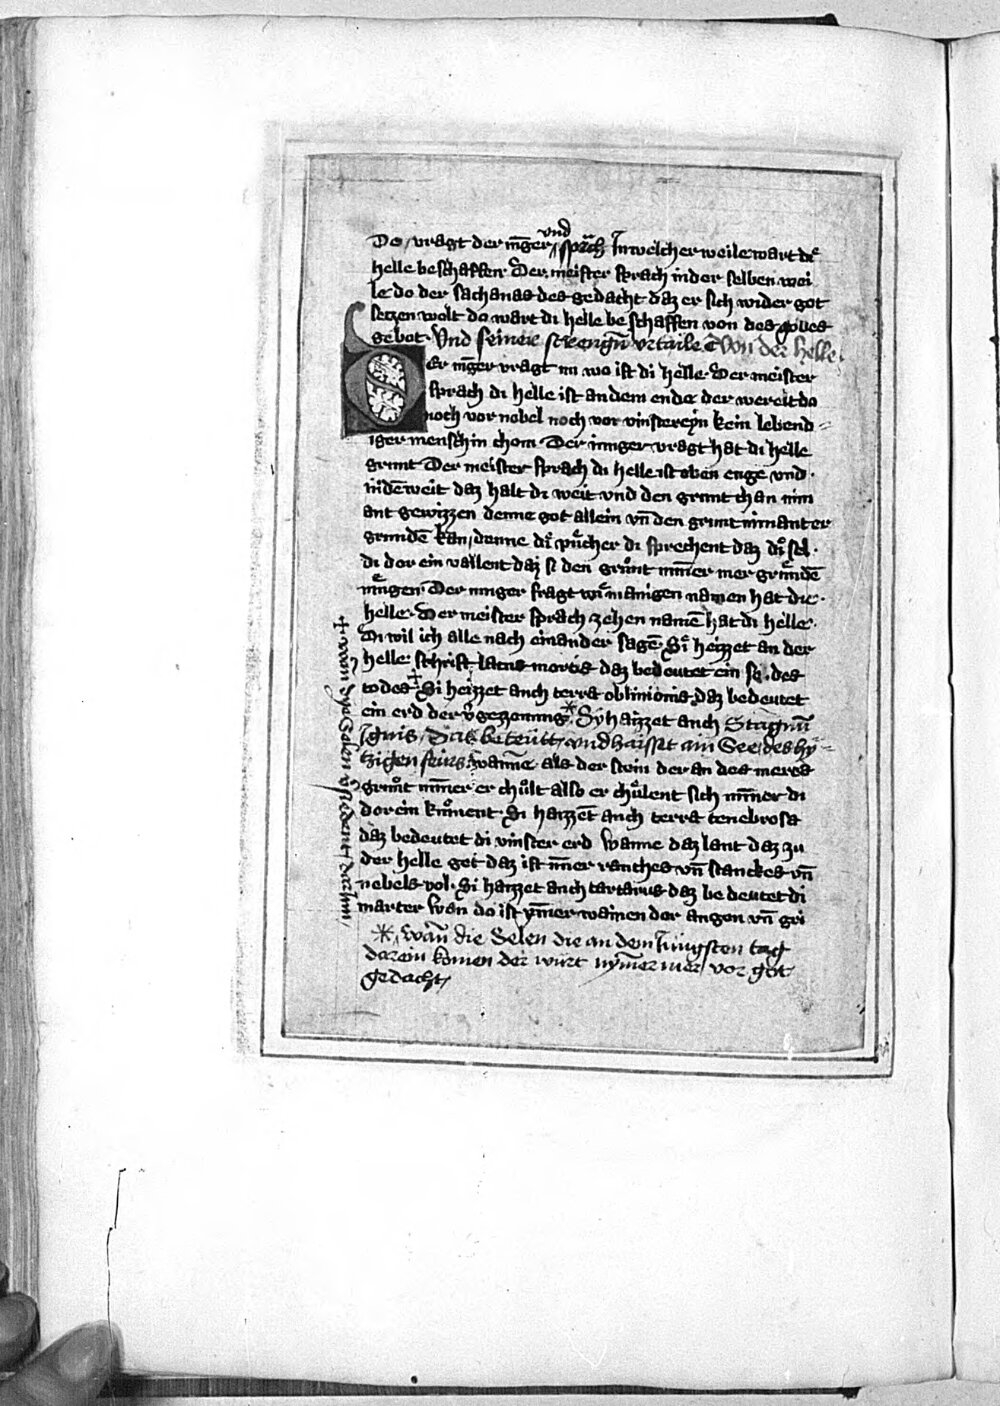 Do vragt der iu̅ger und sprach In welcher weile wart di
helle beschaffen Der meister sprach in der selben wei
le do der sathanas des gedacht daz er sich wider got
setzen wolt do wart di helle beschaffen von des gotes
gebot. Vnd seiner strengn̅ vrtaile Von der Helle.
Der iu̅ger vragt nu wo ist di helle. Der meister
sprach di helle ist an dem ende der werelt do
noch vor nebel noch vor vinstereyn kein lebend
iger mensch in chom Der iunger vragt hat di helle
grunt Der meister sprach di helle ist oben enge vnd
in̅de̅ weit daz halt di weit vnd den grunt chan nim
ant gewizzen denne got allein vn̅ den grunt nimant er
grunde̅ kan, denne di puͤcher di sprechent daz di sel.
di dor ein vallent daz si den grunt nim̅er mer grunde̅
mugen Der iunger fragt wi manigen namen hat die.
helle. Der meister sprach zehen name̅ hat di helle.
Di wil ich alle nach einander sage̅. Si heizzet an der
helle schrift latus mortis daz bedeutet ein se. des
todes + Si heizzet auch terra obliuionis daz bedeutet
ein erd der v̓gezzenung * Sy haizzet auch Stagnu̅
Ignis, Das beteutt, vnd haisst ain See des hy-
zigen feurs wanne als der stein der an des meres
grunt nim̅er er chuͤlt also er chuͤlent sich nim̅er di
dor ein kument. Si haizze̅t auch terra tenebrosa
daz bedeutet di vinster erd wanne daz lant daz zu
der helle get daz ist im̅er rauches vn̅ stanckes vn̅
nebels vol. Si haizzet auch tartarus daz bedeutet di
marter wan do ist ym̅er wainen der augen vn̅ gri
* wan̅ die Selen die an dem Jungsten tag
darein komen der wirt nym̅er mer vor got
gedacht
+ wan̅ dye Selen
darinn